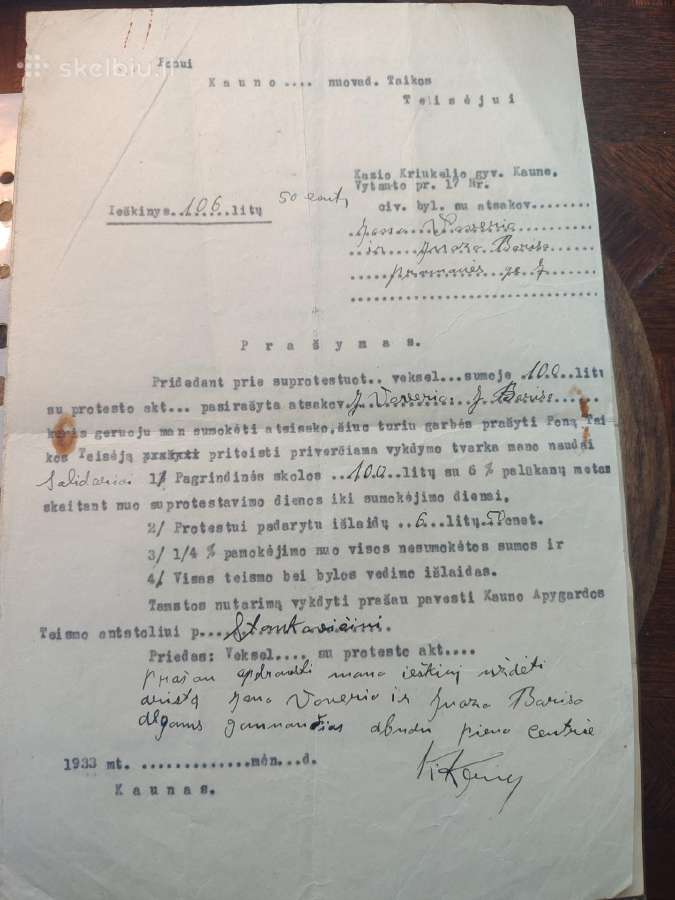 skelbiu.lt
Ponui
Kauno .... nuovad. Taikos
Teisėjui
Kazio Kriukelio gyv. Kaune,
Vytauto pr. 17 Nr.
Ieškinys 106 litų 50 cent,
civ. byl. su atsakov.........
Jono Vaverio
ir Juozo Bariso
P r a š y m a s.
Pridedant prie suprotestuot.. veksel...sumoje 100 litų
su protesto akt... pasirašyta atsakov J Vaverio J. Bariso
kuris geruoju man sumokėti atsisako, šiuo turiu garbės prašyti Poną Tai
kos Teisėją prašyti priteisti priverčiama vykdymo tvarka mano naudai
Solidariai 1/ Pagrindinės skolos ..100 litų su 6 % palūkanų metams
skaitant nuo suprotestavimo dienos iki sumokėjimo dienai,
2/ Protestui padarytu išlaidų ..6.. litų 50 cnt.
3/ 1/4 % pamokėjimo nuo visos nesumokėtos sumos ir
4/ Visas teismo bei bylos vedimo išlaidas.
Tamstos nutarimą vykdyti prašau pavesti Kauno Apygardos
Teismo antstoliui p....Stankavičiui.
Priedas: Veksel.... su protesto akt....
Prašau apdrausti mano ieškinį uždėti
areštą Jono Vaverio ir Juozo Bariso
algoms gaunančias abudu pieno centre
1933 mt. .............mėn...d.
Kaunas.